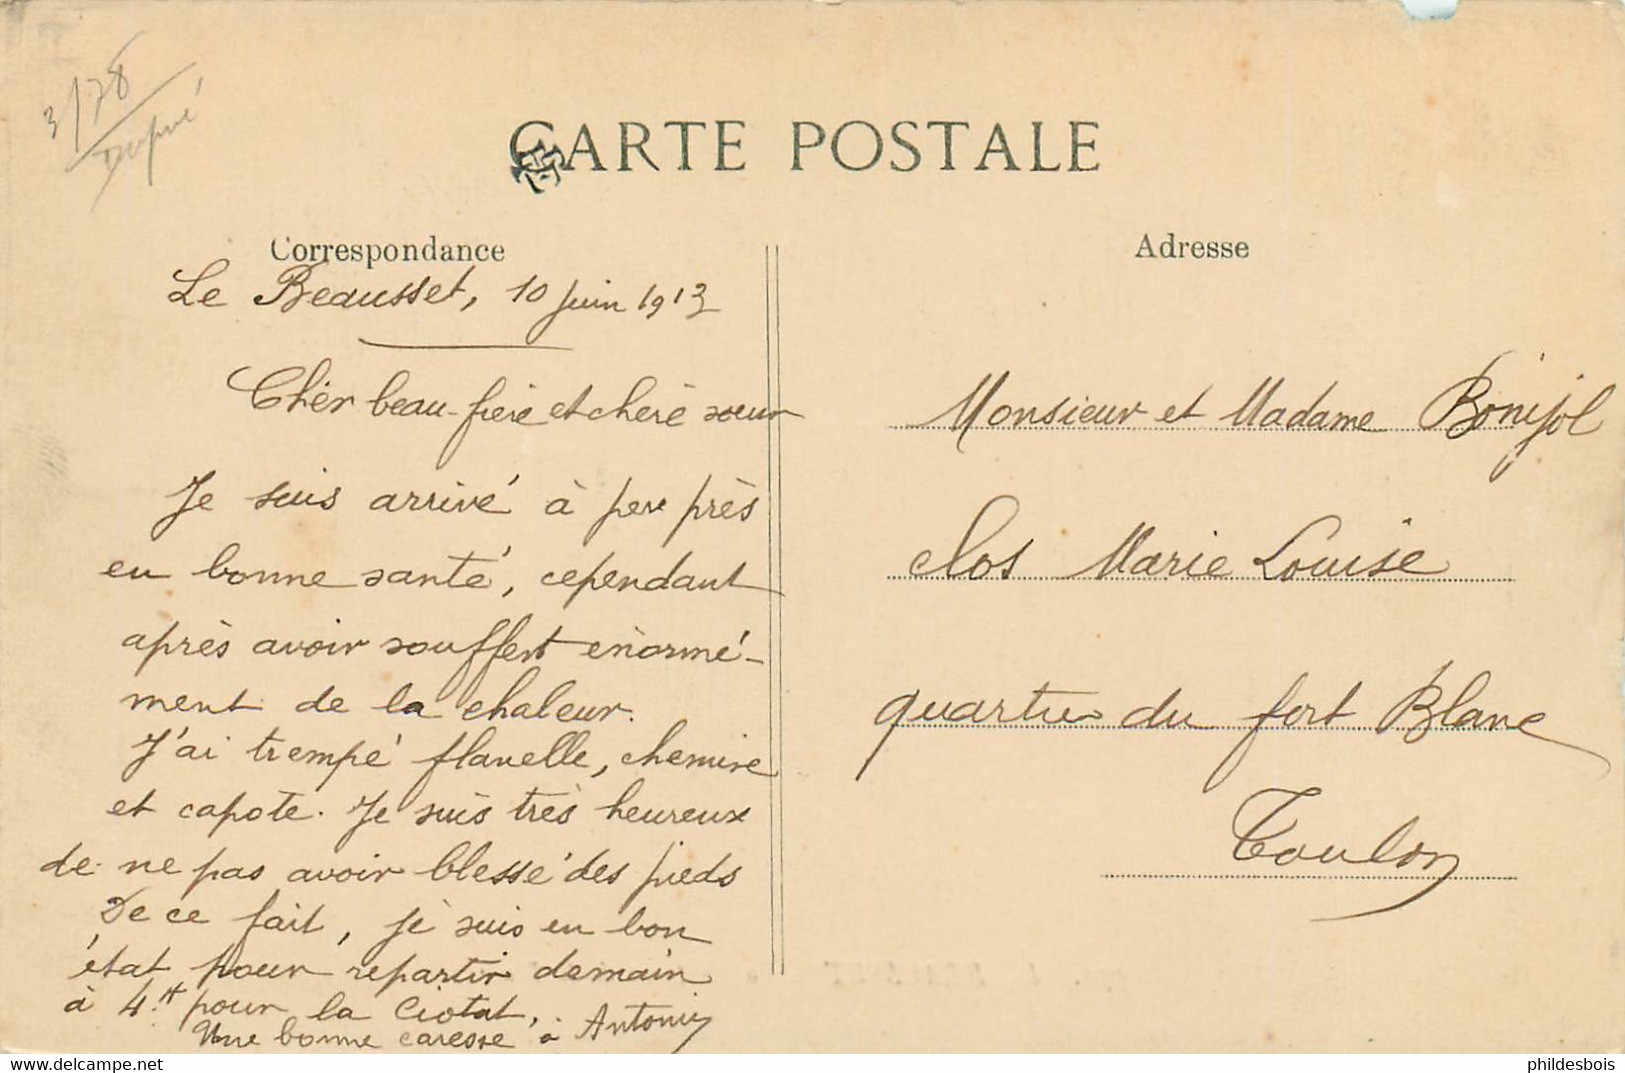 3/78
CARTE POSTALE
Correspondance
Le Beausset, 10 juin 1913
Cher beau-frère et chère sœur
Je suis arrivé à peu près
en bonne santé, cependant
après avoir souffert énormé-
ment de la chaleur.
J'ai trempé flanelle, chemise
et capote. Je suis très heureux
de ne pas avoir blessé des pieds
De ce fait, je suis en bon
état pour repartir demain
à 4H pour la Ciotat,
Une bonne caresse à Antonin
Adresse
Monsieur et Madame Bonijol
clos Marie Louise
quartier du fort Blanc
Toulon
delcampe.net
phildesbois